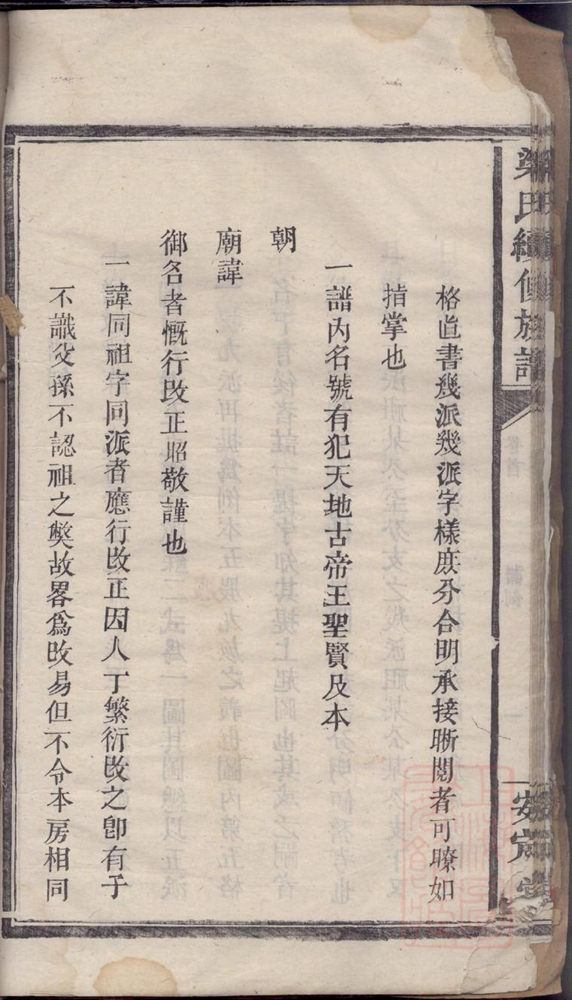 梁氏續修族譜
卷首
安定堂
格直書幾派幾派字樣庶分合明承接晣閱者可瞭如
指掌也
一譜內名號有犯天地古帝王聖賢及本
朝
廟諱
御名者慨行改正昭敬謹也
一諱同祖字同派者應行改正因人丁繁衍改之卽有子
不識父孫不認祖之獘故畧爲改易但不令本房相同